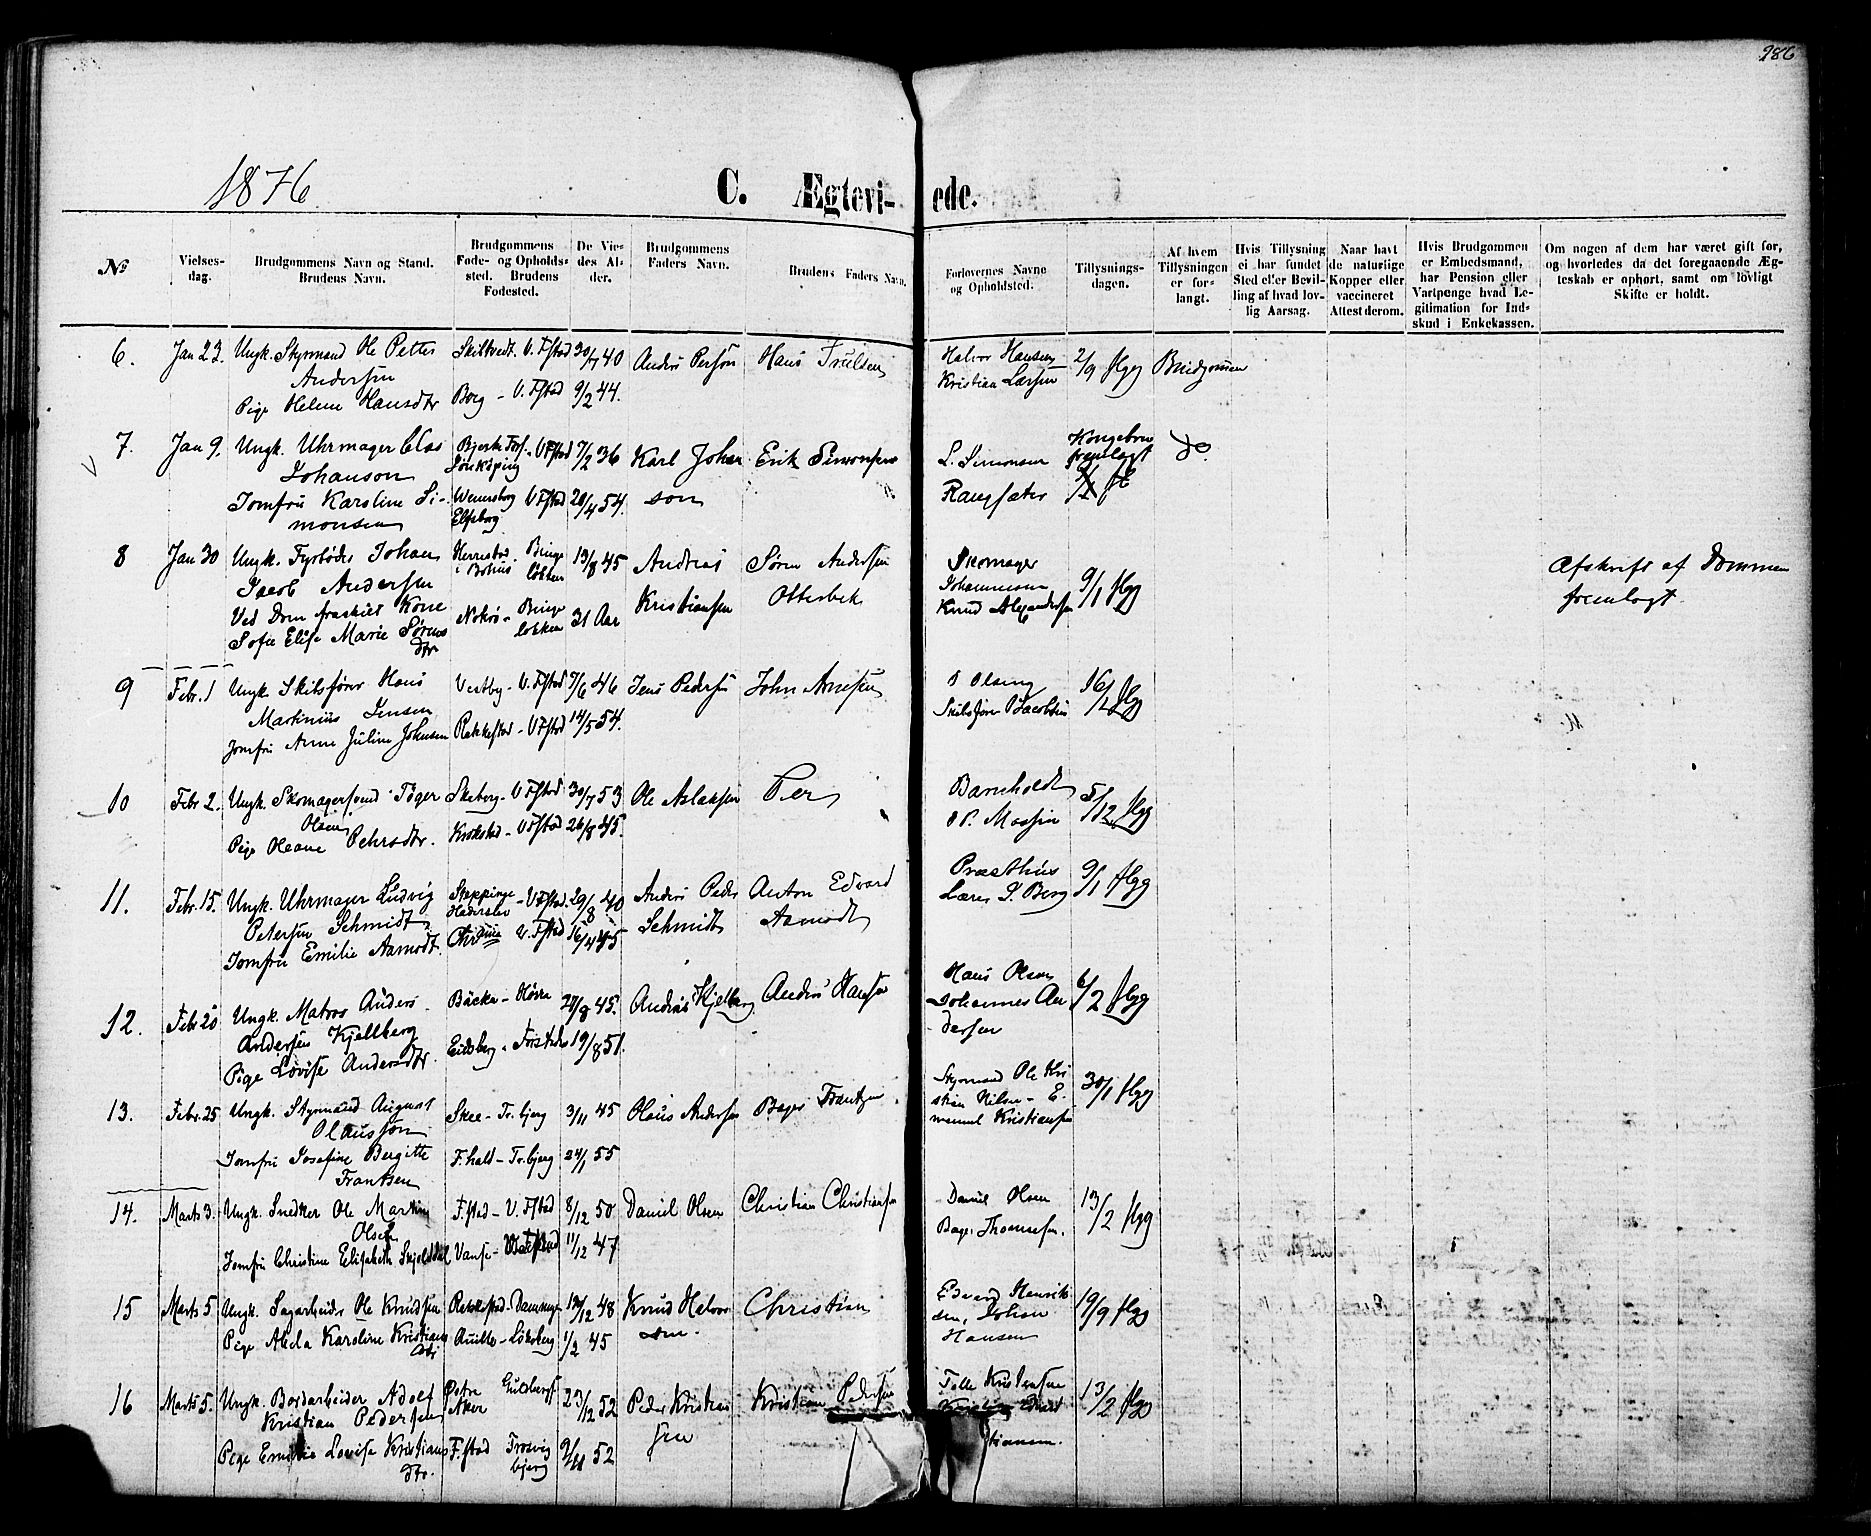 986
1876.
C. Ægtevi-ede.
№
Vielses-dag.
Brudgommens Navn og Stand. Brudens Navn.
Brudgommens Føde- og Opholds-sted. Brudens Fødested.
De Vie-des Al-der.
Brudgommens Faders Navn.
Brudens Faders Navn.
Forlovernes Navne og Opholdsted.
Tillysnings-dagen.
Af hvem Tillysningen er for-langt.
Hvis Tillysning ei har fundet Sted eller Bevil-ling af hvad lov-lig Aarsag.
Naar havt de naturlige Kopper eller vaccineret Attest derom.
Hvis Brudgommen er Embedsmand, har Pension eller Vartpenge hvad Le-gitimation for Ind-skud i Enkekassen.
Om nogen af dem har været gift før, og hvorledes da det foregaaende Æg-teskab er ophørt, samt om lovligt Skifte er holdt.
6. Jan 23. Ungk. Styrmand Ole Petter Skiltvedt. V. Fstad 30/7 40 Anders Person Hans Trulsen Halvor Hansen 2/9 Hgg Brudgommen
Andersen Kristian Larsen
Pige Helene Hansdtr Borg - V. Fstad 9/2 44.
7. Jan 9. Ungk. Uhrmager Clas V Fstad 7/2 36 Karl Johan Erik Simonsen L. Simonsen Kongebrev fremlagt do
Johanson Jönköping son
Jomfru Karoline Si- Wenersborg V Fstad 20/4 54.
monsen Elfsborg
8 Jan 30 Ungk. Fyrbøder Johan Herrestad Binge 13/8 45 Andreas Søren Andersen Skomager 9/1 Hgg Afskrift af Dommen
Jacob Andersen i Bohus løkken Kristiansen Otterbek Johannesen fremlagt.
Ved Dom fraskilt Kone Binge 31 Aar Knud Alexandersen
Sofie Elise Marie Sørens løkken
dtr
9 Febr. 1 Ungk. Skibsfører Hans Vestby - V. Fstad 7/6 46 Jens Pedersen John Arnesen Olsen 16/1 Hgg
Martinius Jensen Skibsfører Jacobsen
Jomfru Anne Juline Johnsen Rakkestad - V Fstad 14/5 54.
10 Febr 2. Ungk. Skomagersvend Tøger Skeberg - V Fstad 30/7 53 Ole Aslaksen Per Barnholdt 5/12 Hgg
Olsen
Pige Oleane Pehrsdtr. Krokstad - V Fstad 26/8 45.
11. Febr. 15. Ungk. Uhrmager Ludvig Steppinge V Fstad. 29/8 40 Anders Peder Anton Edvard 9/1 Hgg
Petersen Schmidt Haderslev Schmidt Aamodt Lærer P. Berg
Jomfru Emilie Aamodt. V. Fstad 16/4 45
12. Febr 20 Ungk. Matros Anders Bäcka - 27/8 45. Anders Kjelberg Anders Hansen Hans Olsen 6/2 Hgg
Andersen Kjellberg Johannes An
Pige Lovise Andersdtr. Eidsberg - 19/8 51. dersen
13. Febr. 25 Ungk. Styrmand August Skee - Tr. bjerg 3/11 45 Olaus Andersen Frantzen Styrmand Ole Kri 30/1 Hgg
Olausson stian Nilsen - E
Jomfru Josefine Bergitte F.hald - Tr.bjerg 24/1 55 manuel Kristiansen
Frantsen
14. Marts 3. Ungk. Snedker Ole Martin F.stad - V. Fstad 8/12 50 Daniel Olsen Christian Christiansen Daniel Olsen 13/2 Hgg
Olsen Thomesen.
Jomfru Christine Elisabeth Skjolddal Vanse - 11/12 47
15 Marts 5 Ungk. Sagarbeider Ole Knudsen Rakkestad - 12/12 48 Knud Halvor Christian Edvard Henrik 19/9 Hgg
sen. sen, Johan
Pige Alida Karoline Kristians 1/2 45 Hansen
dtr
16 Marts 5. Ungk. Bordarbeider Adolf Østre 23/12 52 Peder Kristian Kristian Pedersen 13/2 Hgg
Kristian Pedersen Aker sen
Pige Emilie Lovise Kristians F.stad Trosvig 9/11 52 tiansen.
dtr. bjerg